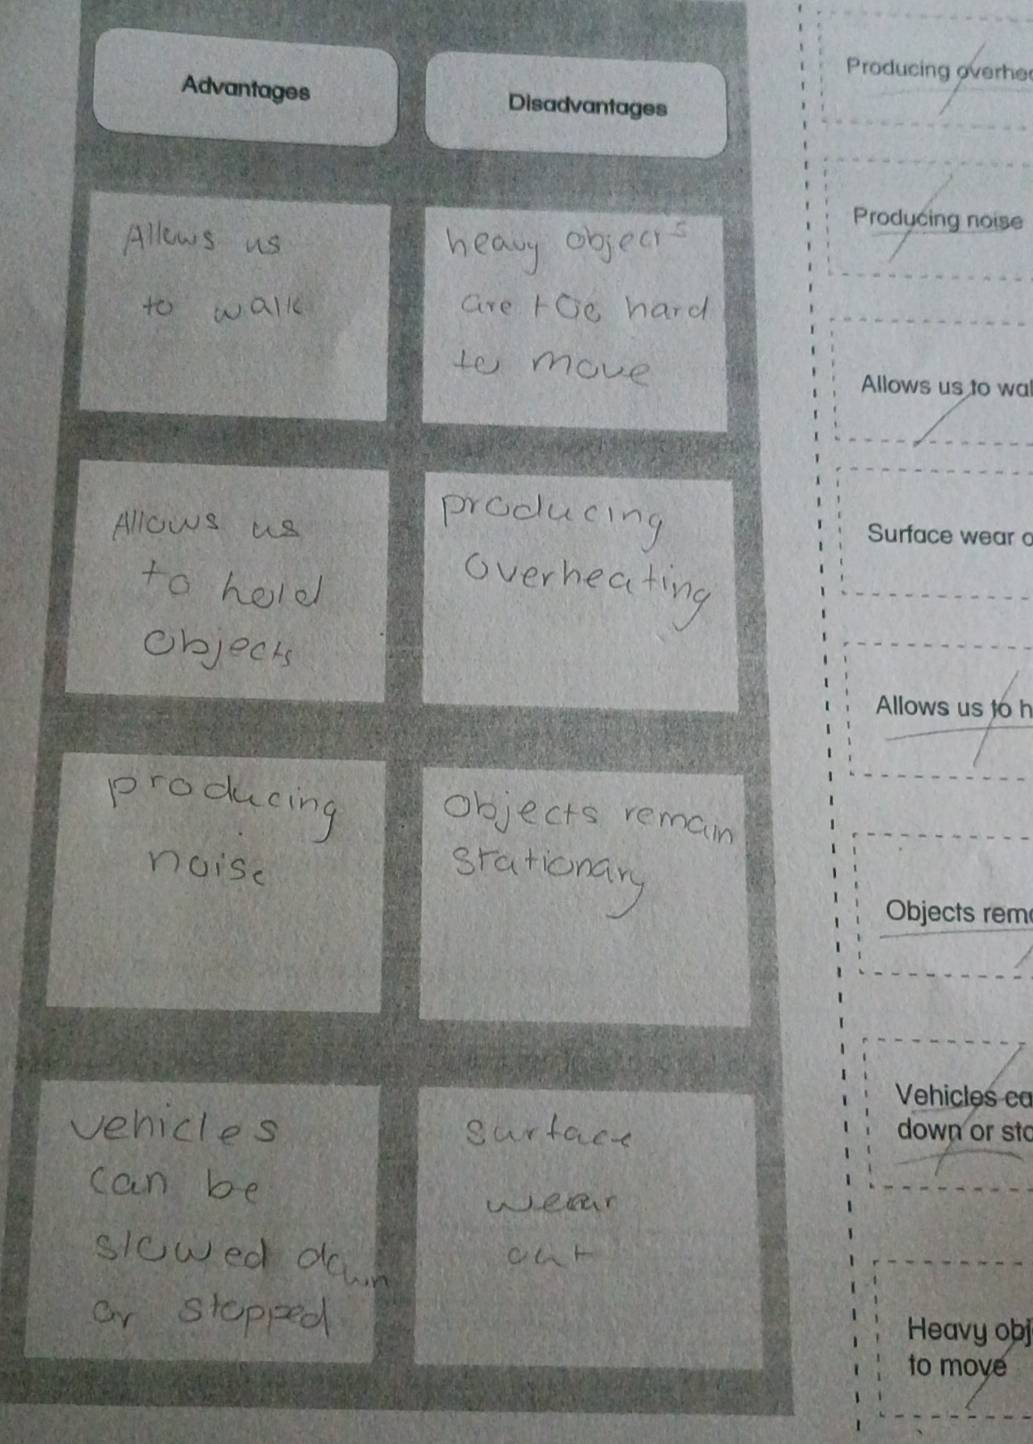 Advantages
Disadvantages
Allows us
to walk
heavy objects
are too hard
to move
Allows us
to hold
objects
producing
overheating
producing
noise
Objects remain
stationary
vehicles
can be
slowed down
or stopped
surface
wear
out
Producing overhea
Producing noise
Allows us to wal
Surface wear o
Allows us to h
Objects rema
Vehicles ca
down or sto
Heavy obj
to move